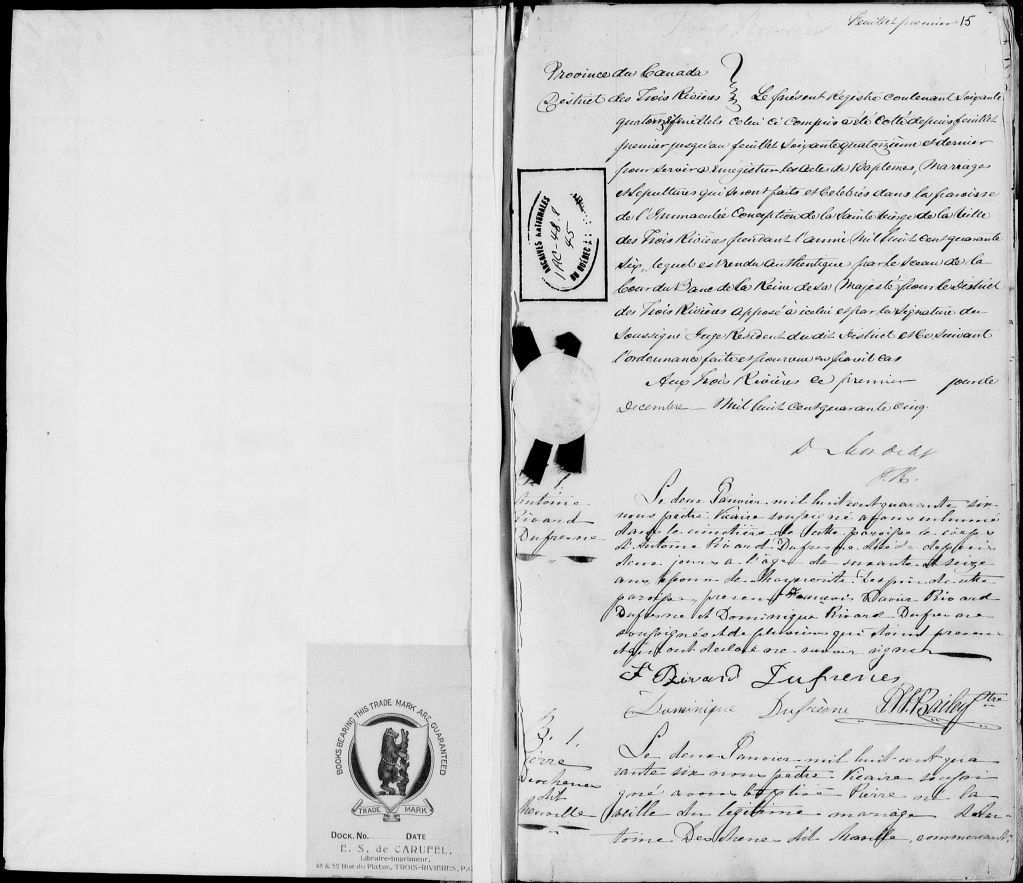 Feuillet premier 15
Province du Canada
District des Trois Rivières Le présent Registre contenant Soixante
quatorze feuillets celui ci compris a été Cotté depuis feuillet
premier jusqu'au feuillet Soixante quatorzième et dernier
pour servir à Enrégistrer les Actes de Baptêmes, Mariages
et Sepultures qui seront faits et Célébrés dans la paroisse
de l'Immaculée Conception de la Sainte Vierge de la Ville
des Trois Rivières pendant l'année Mil huit cent quarante
Six, lequel est rendu authentique par le Sceau de la
Cour du Banc de la Reine de Sa Majesté pour le District
des Trois Rivières apposé à icelui et par la Signature du
Soussigné Juge Resident du dit District et Ce suivant
l'ordonnance faite et pourvue en pareil cas
Aux Trois Rivières ce premier jour de
Decembre Mil huit Cent quarante Cinq.
ARCHIVES NATIONALES
DU QUEBEC
45
S. 1.
Antoine
Rivard
Dufresne
Le deux Janvier mil huit cent quarante six
nous prêtre Vicaire soussigné avons inhumé
dans le cimetière de cette paroisse le corps
d'Antoine Rivard Dufresne décédé depuis
deux jours à l'âge de soixante et seize
ans, époux de Marguerite de cette
paroisse, présens François Xavier Rivard
Dufresne et Dominique Rivard Dufresne
soussignés et de plusieurs qui étoient présens
et qui ont déclaré ne savoir signer
F Rivard Dufrenes
Dominique Dufresne Bailey Ptre
B. 1.
Pierre
Deschene
dit
Le deux Janvier mil huit cent qua
rante six nous prêtre Vicaire soussi
gné avons baptisé Pierre né la
veille du légitime mariage d'An-
toine Deschene dit commerçant
BOOKS BEARING THIS TRADE MARK ARE GUARANTEED
TRADE MARK
DOCK. No. DATE
E. S. de CARUFEL,
Libraire-Imprimeur,
48 & 52 Rue du Platon, TROIS-RIVIERES, P.Q.